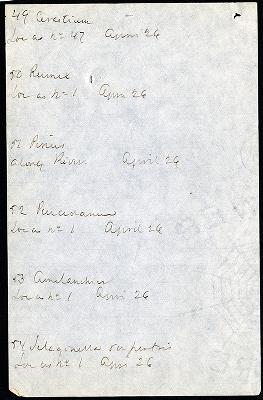 49 Cerastium
Loc as no 47 April 26
50 Rumex
Loc as no 1 April 26
51 Pinus
along River April 26
52 Peucedanum
Loc as no 1 April 26
53 Amelanchier
Loc as no 1 April 26
54 Selaginella rupestris
Loc as no 1 April 26